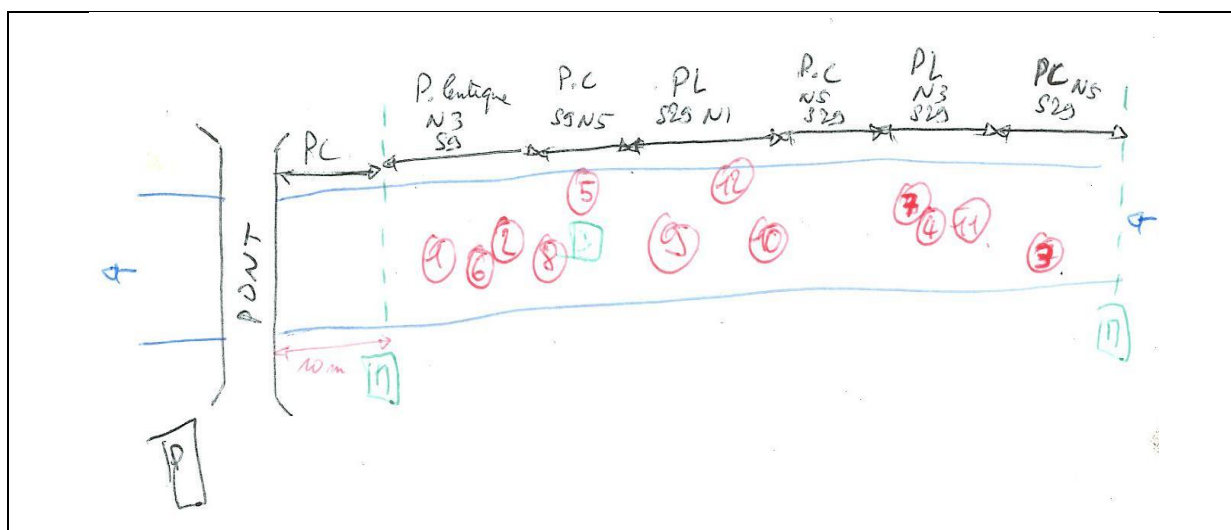 PC
P. lentique
N3
S9
P.C
S9 N5
PL
S29 N1
P.C
N5
S29
PL
N3
S29
PC N5
S29
PONT
1
6
2
8
5
9
12
10
7
4
11
3
10 m
P